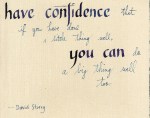 have confidence that
if you have done
a little thing well,
you can do
a big thing well
too.
— David Storey